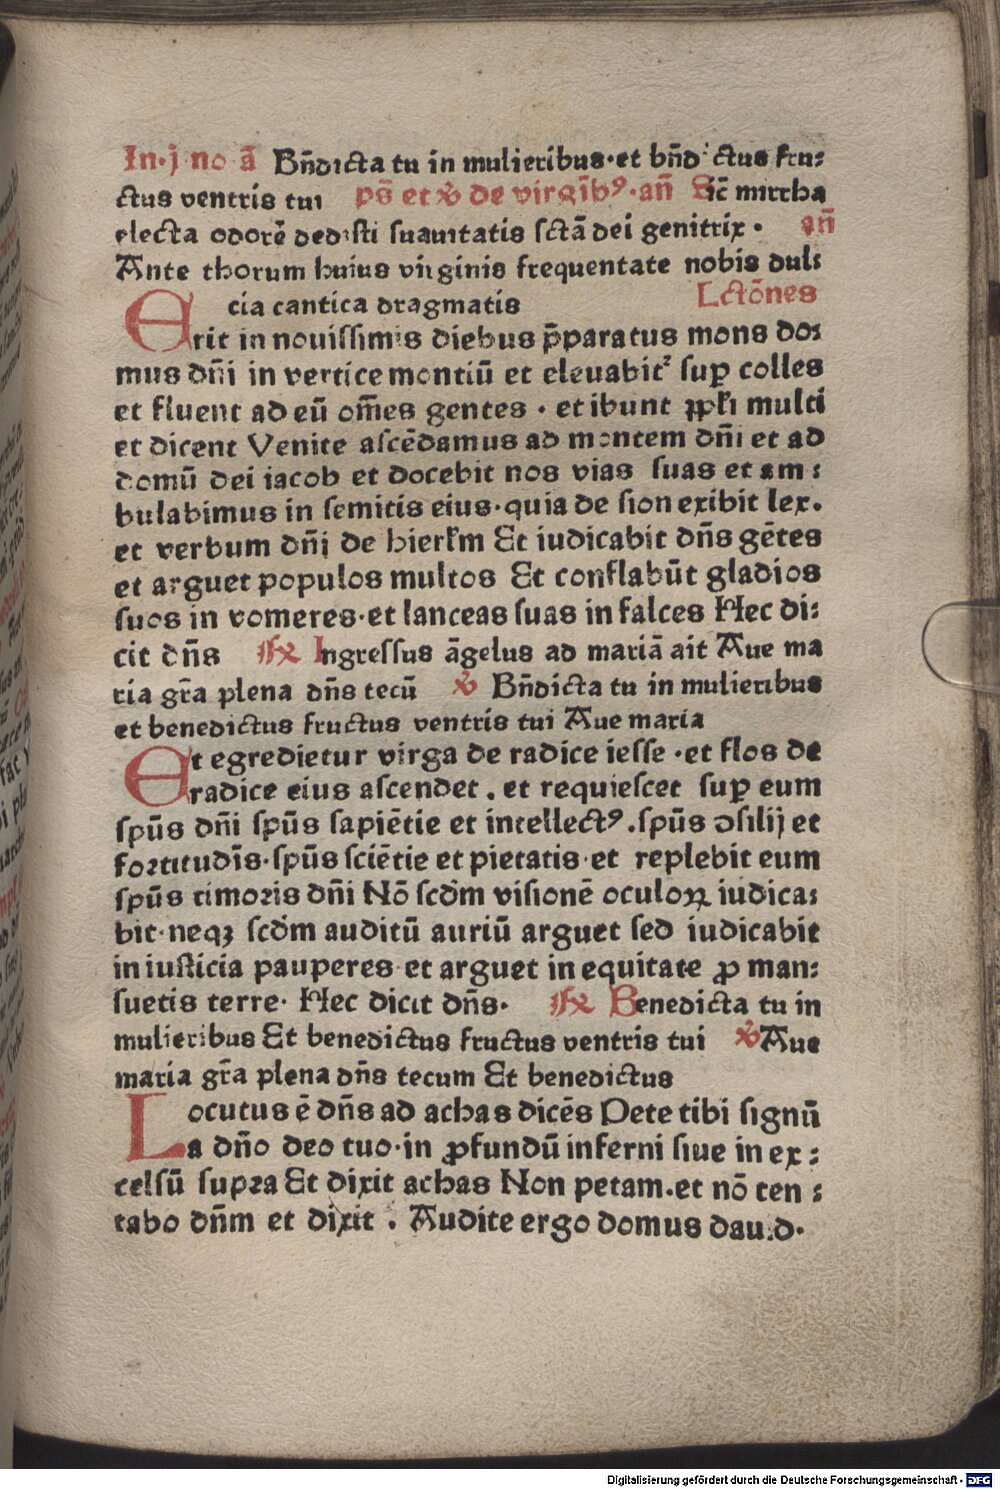 In·j no ā Bn̄dicta tu in mulieribus·et bn̄d'ctus fru:
ctus ventris tui ps̄ et ℣ de virgīb9·an̄ Sic̄ mirrha
electa odorē dedisti suauitatis sctā dei genitrix·
an̄
Ante thorum huius virginis frequentate nobis dul:
cia cantica dragmatis Lctōnes
Erit in nouissimis diebus p̄paratus mons do:
mus dn̄i in vertice montiū et eleuabit᷑ suꝑ colles
et fluent ad eū om̄es gentes · et ibunt ꝓpl̄i multi
et dicent Venite ascēdamus ad montem dn̄i et ad
domū dei iacob et docebit nos vias suas et am:
bulabimus in semitis eius·quia de sion exibit lex.
et verbum dn̄j de hierl̄m Et iudicabit dn̄s gētes
et arguet populos multos Et conflabūt gladios
suos in vomeres·et lanceas suas in falces Hec di:
cit dn̄s ℟ Ingressus āgelus ad mariā ait Aue ma
ria gr̄a plena dn̄s tecū ℣ Bn̄dicta tu in mulieribus
et benedictus fructus ventris tui Aue maria
Et egredietur virga de radice iesse ·et flos de
radice eius ascendet . et requiescet suꝑ eum
spūs dn̄i spūs sapiētie et intellect9.spūs ↄsilij et
fortitudīs·spūs sciētie et pietatis·et replebit eum
spūs timoris dn̄i Nō scd̄m visionē oculoꝝ iudica:
bit·neqꝫ scd̄m auditū auriū arguet sed iudicabit
in iusticia pauperes·et arguet in equitate ꝓ man:
suetis terre· Hec dicit dn̄s· ℟ Benedicta tu in
mulieribus Et benedictus fructus ventris tui ℣ Aue
maria gr̄a plena dn̄s tecum Et benedictus
Locutus ē dn̄s ad achas dicēs Pete tibi signū
a dn̄o deo tuo·in ꝓfundū inferni siue in ex:
celsū supra Et dixit achas Non petam.et nō ten:
tabo dn̄m et dixit . Audite ergo domus dauid·
Digitalisierung gefördert durch die Deutsche Forschungsgemeinschaft - DFG